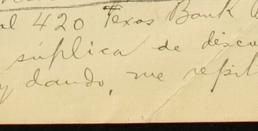 al 420 Texas Bank
súplica de discu
y dando, me repit